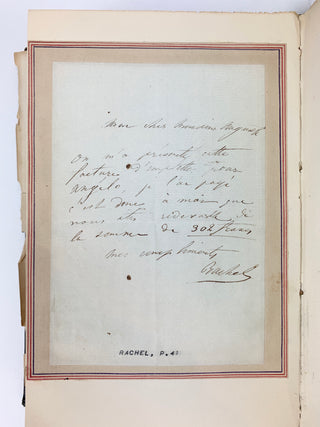 Mon cher Monsieur August
On m'a présenté cette
facture d'emplette pour
angélo, je l'ai payé
c'est donc à moi que
vous êtes redevable de
la somme de 302 francs
mes compliments
Rachel
RACHEL, P. 4